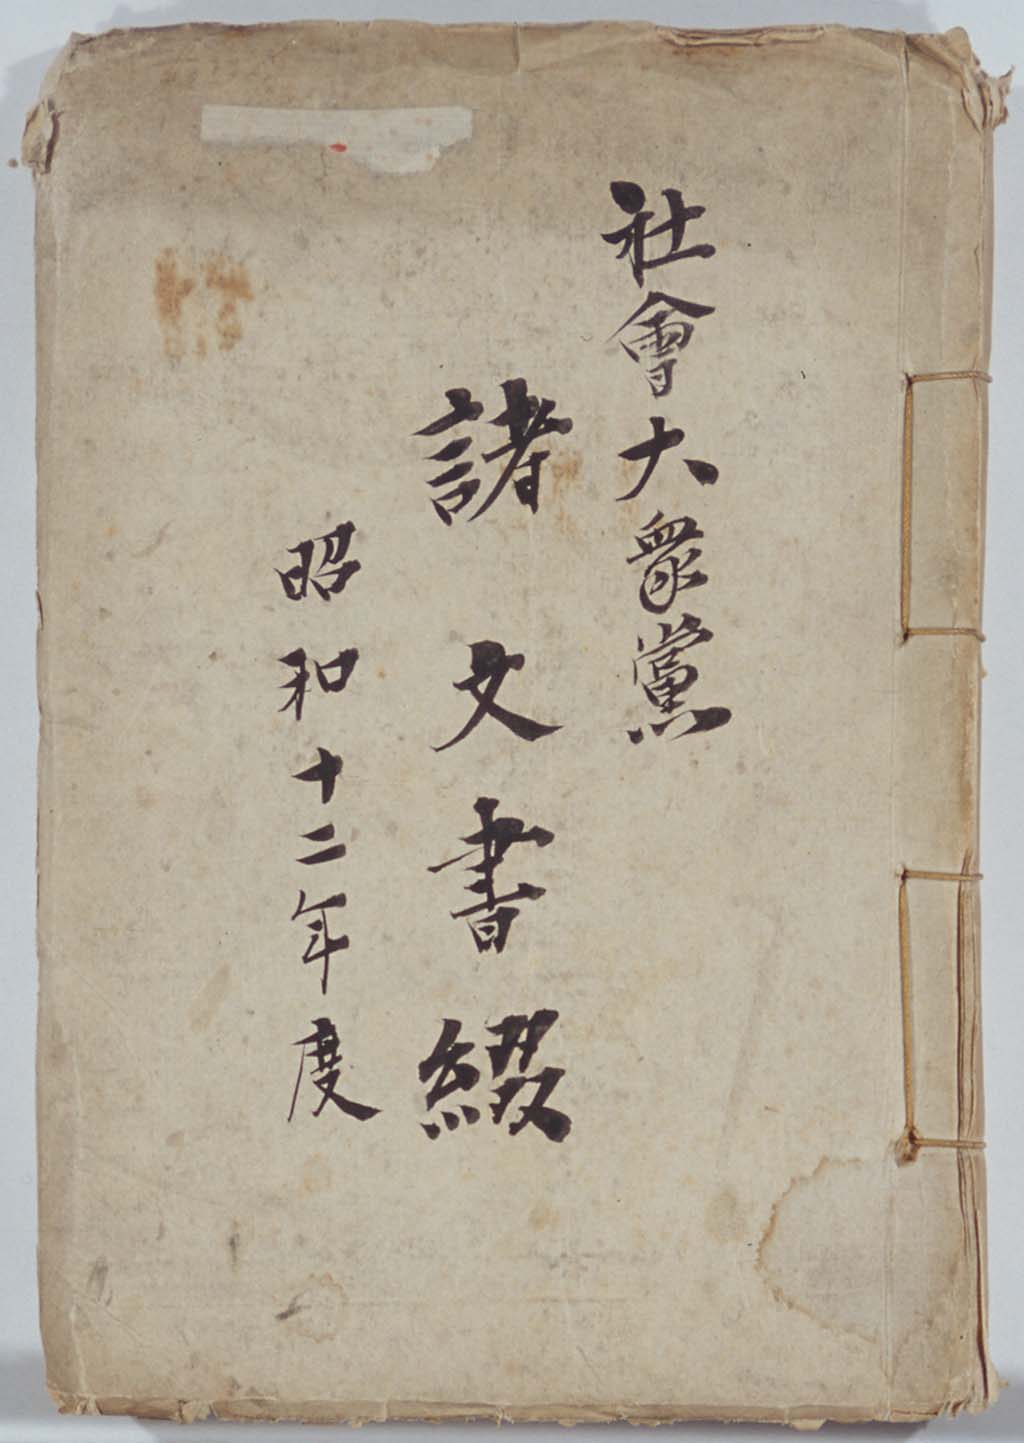 社會大衆黨
諸文書綴
昭和十二年度